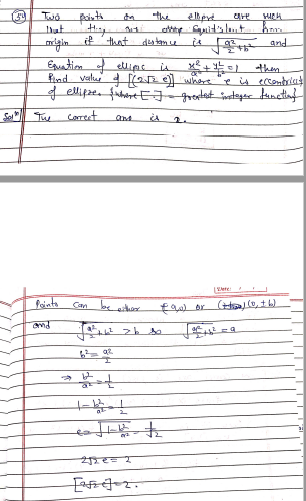 (54) Two points on the ellipse are such
that they are equidistant from
origin if that distance is √(a²/2 + b²) and
Equation of ellipse is x²/a² + y²/b² = 1 then
Find value of [(2√2 e)] where e is eccentricity
of ellipse. {where [-] = greatest integer function}
Solⁿ) The correct ans is 2.
Points can be either (±a,0) or (0, ±b)
and √(a²/2 + b²) > b so √(a²/2 + b²) = a
b² = a²/2
⇒ b²/a² = 1/2
1 - b²/a² = 1/2
e = √(1 - b²/a²) = 1/√2
2√2 e = 2
[2√2 e] = 2.